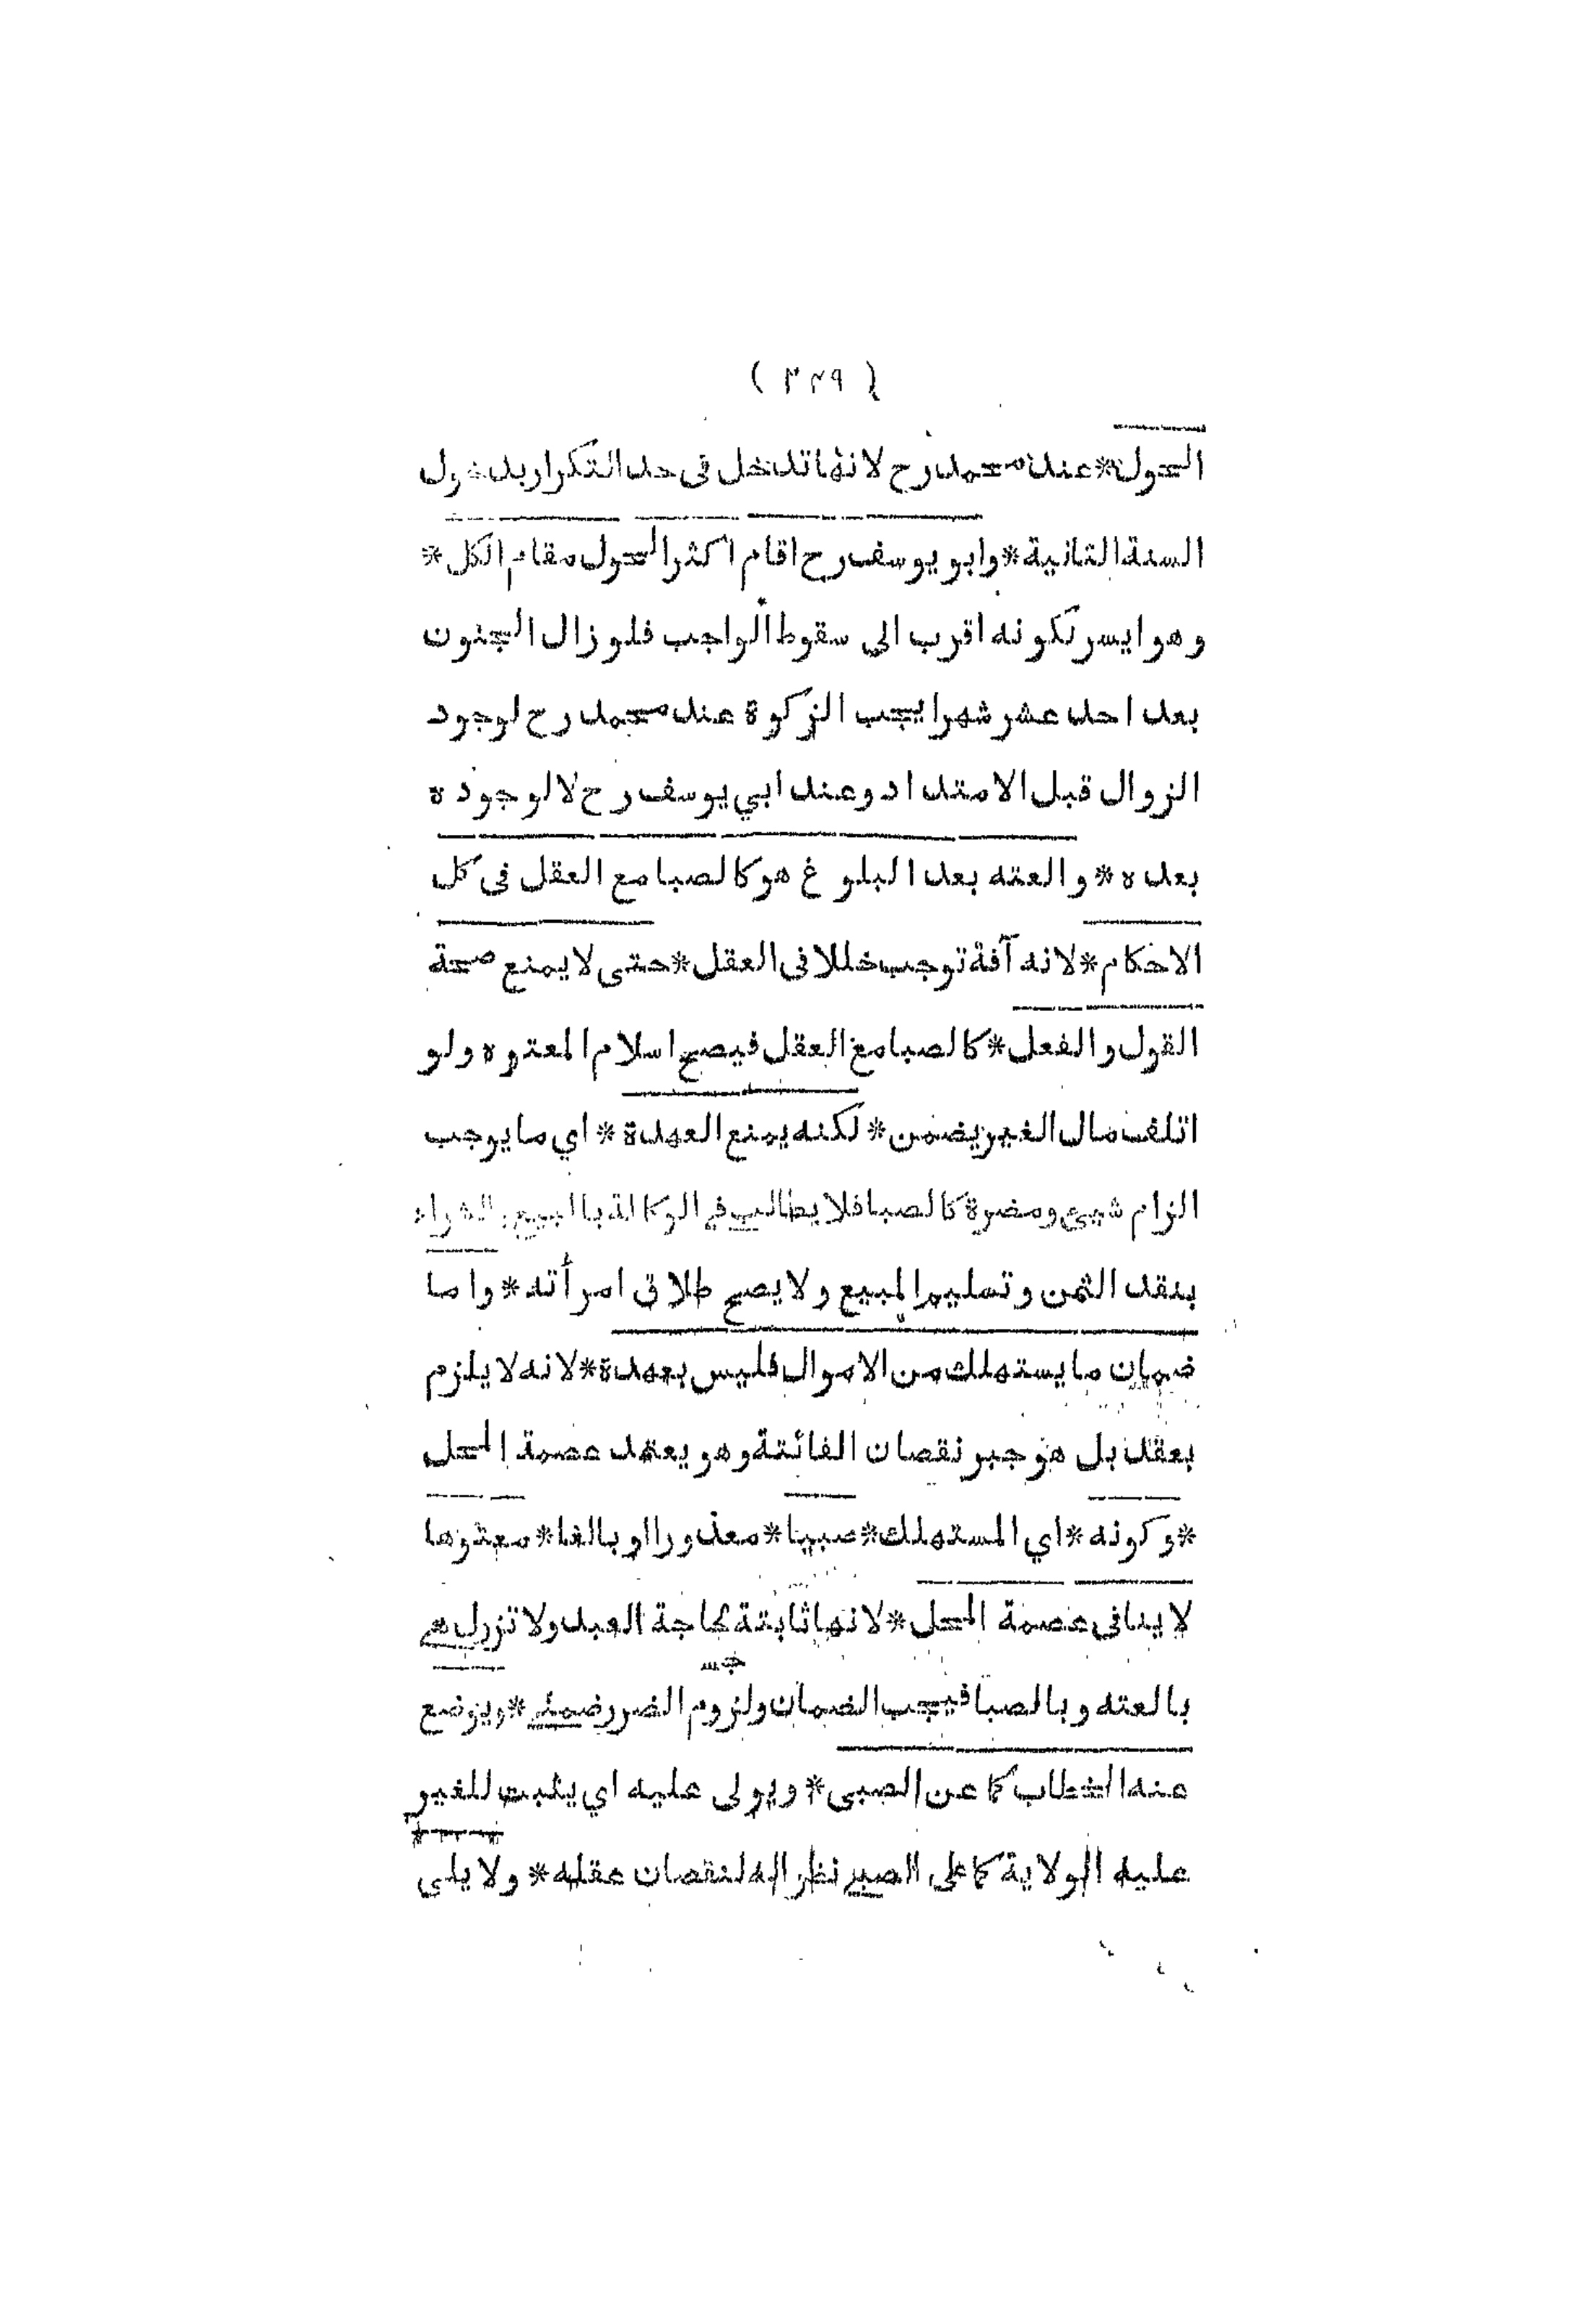 ( ٣٢٩ )
الحول*عند محمد رح لانها تدخل فى حد التكرار بدخول
السنة الثانية*وابو يوسف رح اقام اكثر الحول مقام الكل*
وهو ايسر لكونه اقرب الي سقوط الواجب فلو زال الجنون
بعد احد عشر شهرا يجب الزكوة عند محمد رح لوجود
الزوال قبل الامتداد وعند ابي يوسف رح لا لوجوده
بعده*والعته بعد البلوغ هو كالصبا مع العقل فى كل
الاحكام*لانه آفة توجب خللا فى العقل*حتى لا يمنع صحة
القول والفعل*كالصبا مع العقل فيصح اسلام المعتوه ولو
اتلف مال الغير يضمن*لكنه يمنع العهدة*اي ما يوجب
الزام شيئ ومضرة كالصبا فلا يطالب في الوكالة بالبيع والشراء
بنقد الثمن وتسليم المبيع ولا يصح طلاق امرأته*واما
ضمان ما يستهلك من الاموال فليس بعهدة*لانه لا يلزم
بعقد بل هو جبر نقصان الفائتة وهو يعتمد عصمة المحل
*وكونه*اي المستهلك*صبيا*معذورا او بالغا*معتوها
لا ينافى عصمة المحل*لانها ثابتة لحاجة العبد ولا تزول هي
بالعته وبالصبا فيجب الضمان ولزوم الضرر ضمني*ويوضع
عنه الخطاب كما عن الصبى*ويولى عليه اي يثبت للغير
عليه الولاية كما على الصبي نظرا له لنقصان عقله*ولا يلى